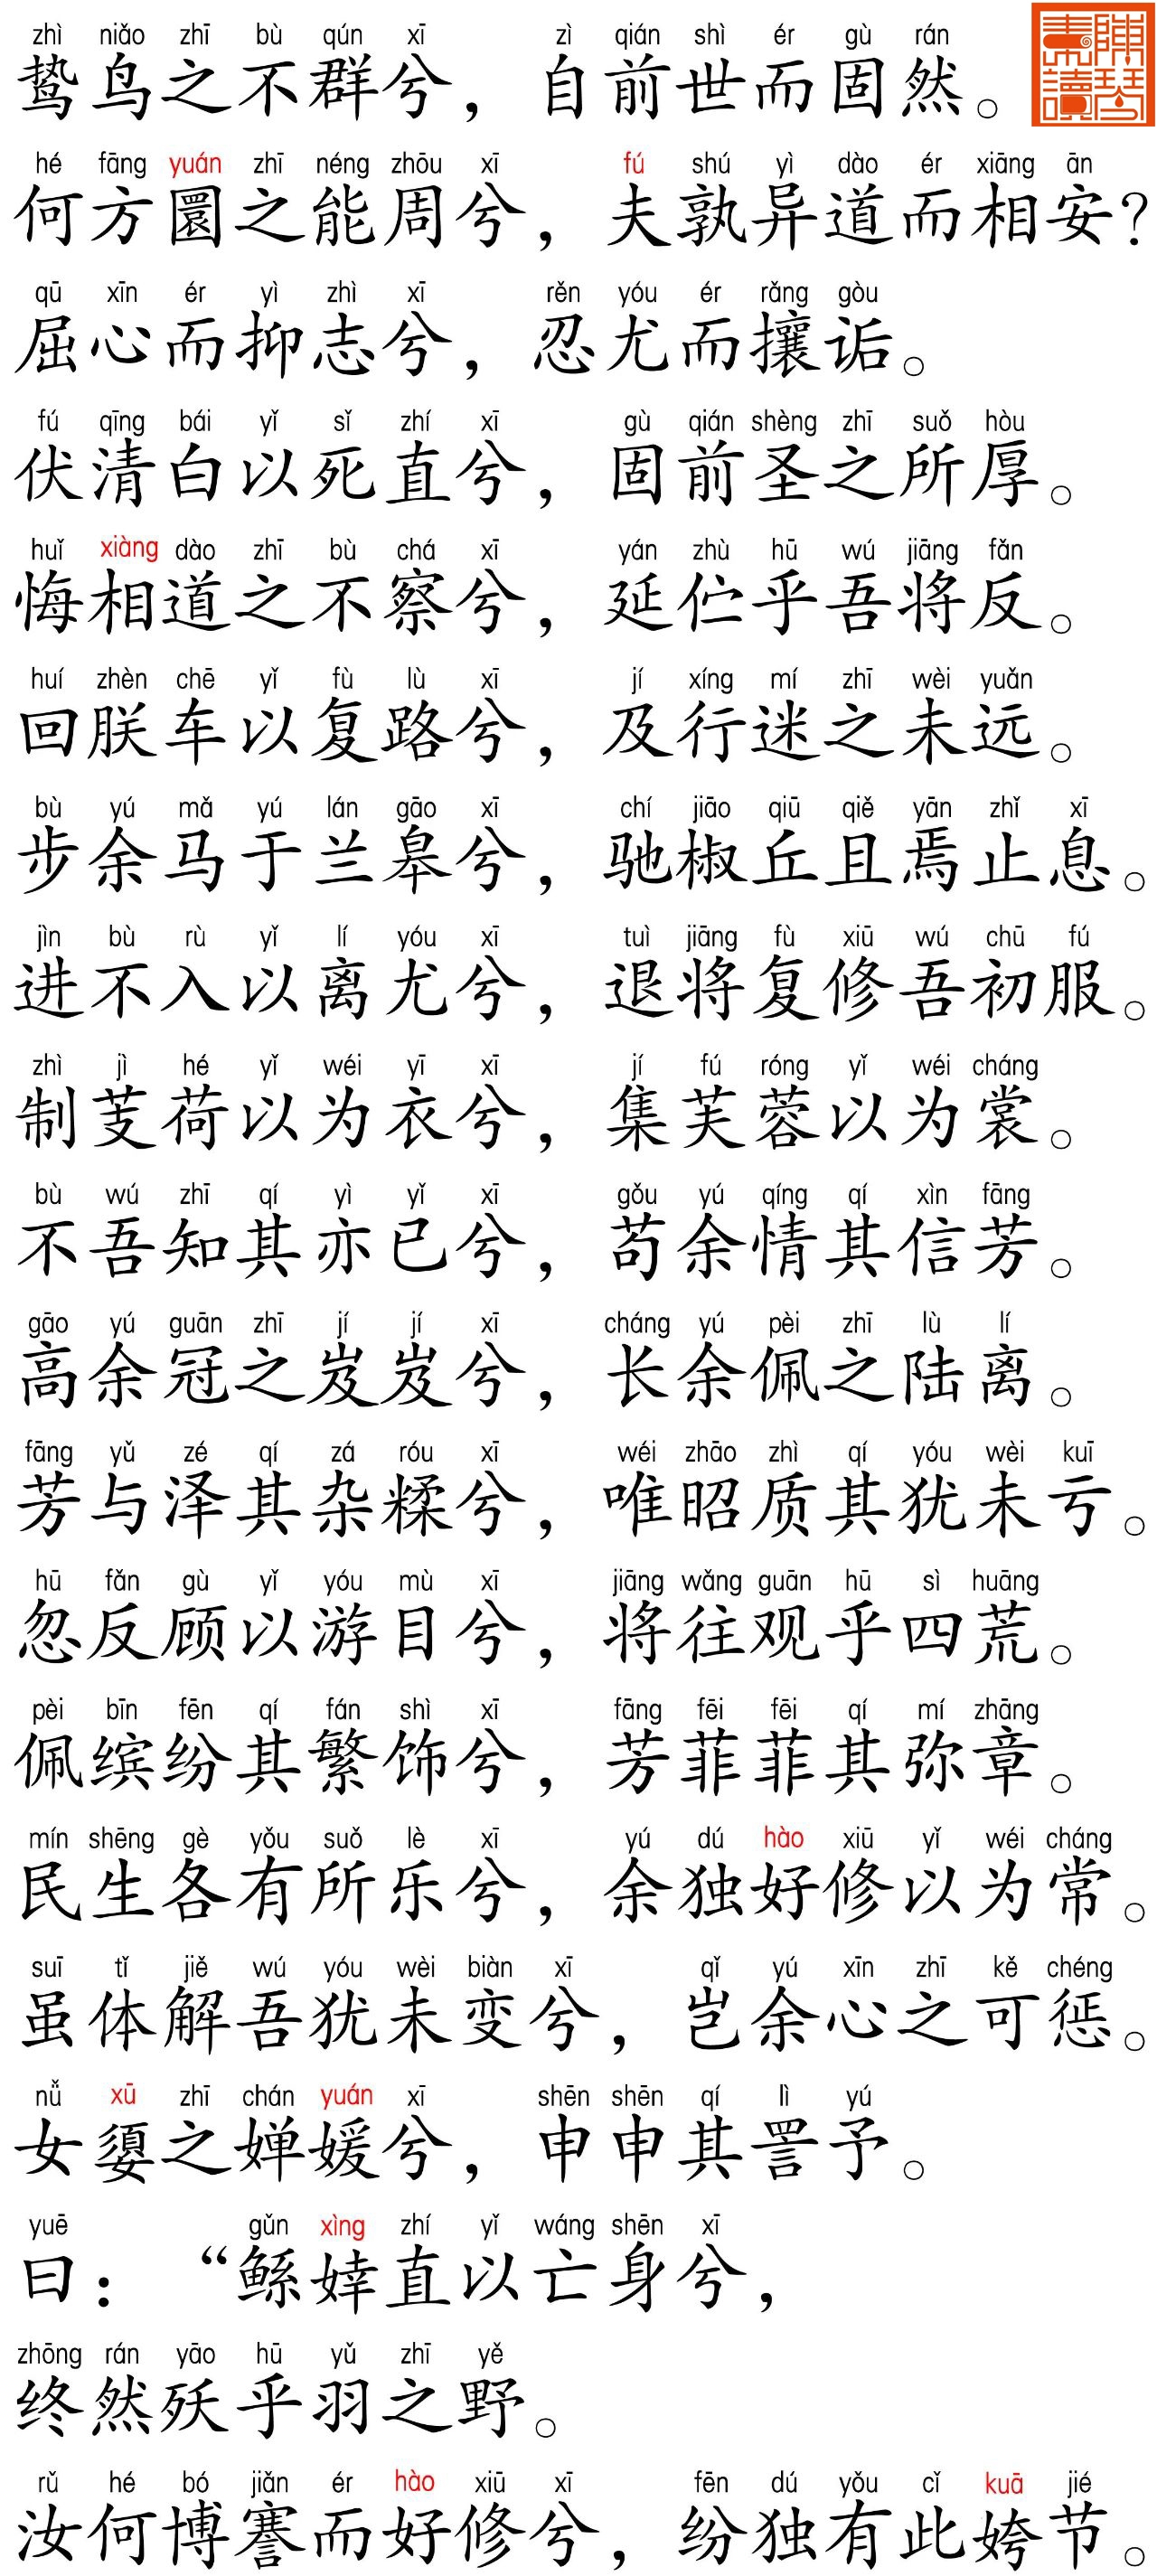 zhì niǎo zhī bù qún xī zì qián shì ér gù rán
鸷鸟之不群兮，自前世而固然。
hé fāng yuán zhī néng zhōu xī fú shú yì dào ér xiāng ān
何方圜之能周兮，夫孰异道而相安？
qū xīn ér yì zhì xī rěn yóu ér rǎng gòu
屈心而抑志兮，忍尤而攘诟。
fú qīng bái yǐ sǐ zhí xī gù qián shèng zhī suǒ hòu
伏清白以死直兮，固前圣之所厚。
huǐ xiàng dào zhī bù chá xī yán zhù hū wú jiāng fǎn
悔相道之不察兮，延伫乎吾将反。
huí zhèn chē yǐ fù lù xī jí xíng mí zhī wèi yuǎn
回朕车以复路兮，及行迷之未远。
bù yú mǎ yú lán gāo xī chí jiāo qiū qiě yān zhǐ xī
步余马于兰皋兮，驰椒丘且焉止息。
jìn bù rù yǐ lí yóu xī tuì jiāng fù xiū wú chū fú
进不入以离尤兮，退将复修吾初服。
zhì jì hé yǐ wéi yī xī jí fú róng yǐ wéi cháng
制芰荷以为衣兮，集芙蓉以为裳。
bù wú zhī qí yì yǐ xī gǒu yú qíng qí xìn fāng
不吾知其亦已兮，苟余情其信芳。
gāo yú guān zhī jí jí xī cháng yú pèi zhī lù lí
高余冠之岌岌兮，长余佩之陆离。
fāng yǔ zé qí zá róu xī wéi zhāo zhì qí yóu wèi kuī
芳与泽其杂糅兮，唯昭质其犹未亏。
hū fǎn gù yǐ yóu mù xī jiāng wǎng guān hū sì huāng
忽反顾以游目兮，将往观乎四荒。
pèi bīn fēn qí fán shì xī fāng fēi fēi qí mí zhāng
佩缤纷其繁饰兮，芳菲菲其弥章。
mín shēng gè yǒu suǒ lè xī yú dú hào xiū yǐ wéi cháng
民生各有所乐兮，余独好修以为常。
suī tǐ jiě wú yóu wèi biàn xī qǐ yú xīn zhī kě chéng
虽体解吾犹未变兮，岂余心之可惩。
nǚ xū zhī chán yuán xī shēn shēn qí lì yú
女媭之婵媛兮，申申其詈予。
yuē gǔn xìng zhí yǐ wáng shēn xī
曰：“鲧婞直以亡身兮，
zhōng rán yāo hū yǔ zhī yě
终然殀乎羽之野。
rǔ hé bó jiǎn ér hào xiū xī fēn dú yǒu cǐ kuā jié
汝何博謇而好修兮，纷独有此姱节。